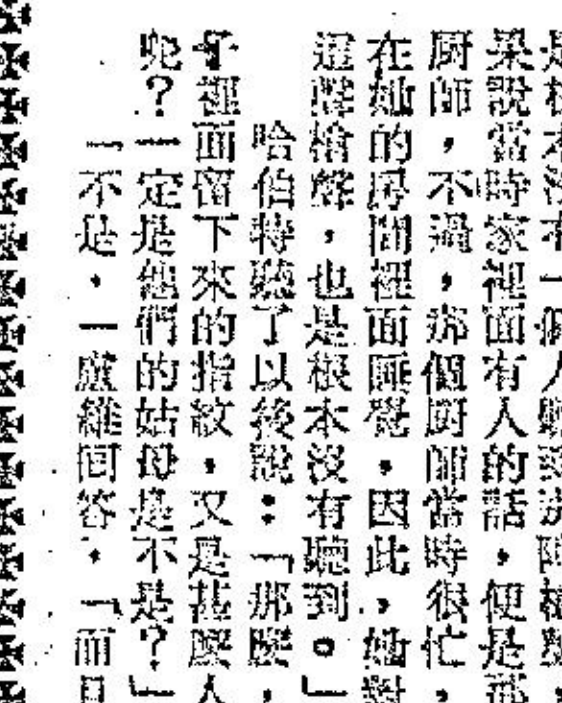 是根本沒有一個人聽到陣槍聲
果說當時家裡面有人的話，便是那
厨師，不過，那個厨師當時很忙，
在她的房間裡面睡覺，因此，她對
這陣槍聲，也是根本沒有聽到。」
哈伯特聽了以後說：「那麼，
子裡面留下來的指紋，又是甚麼人
呢？一定是他們的姑母是不是？」
「不是，」盧維囘答，「而且